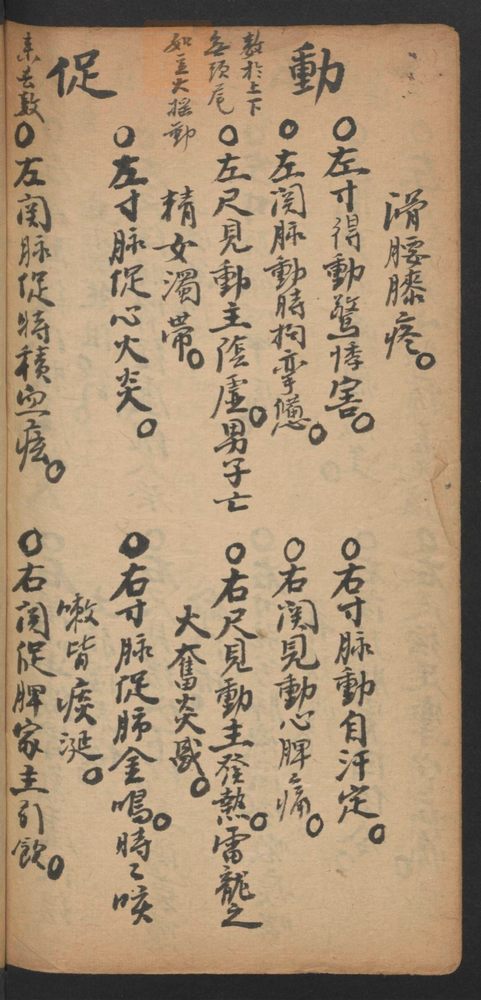 滑腰膝疼。
動
數於上下
無頭尾
如豆大搖動
○左寸得動驚悸害。
○左関脉動時拘攣憊。
○左尺見動主陰虛。男子亡
精女濁帶。
○右寸脉動自汗定。
○右関見動心脾痛。
○右尺見動主發熱。雷龍之
大奮炎威。
促
来去數
○左寸脉促心火炎。
○左関脉促時積血痞。
○右寸脉促肺金鳴。時々咳
嗽皆痰涎。
○右関促脾家主引飲。